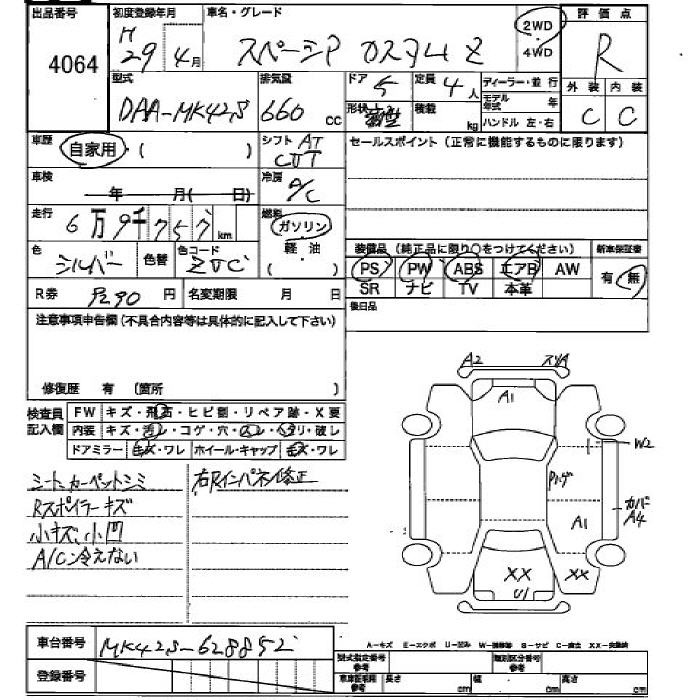 出品番号
4064
初度登録年月
H29年4月
車名・グレード
スペーシア カスタム Z
2WD
4WD
評価点
R
外装 内装
C C
型式
DAA-MK42S
排気量
660 cc
ドア
5
定員
4人
形状
積載
kg
ディーラー・並行
モデル年式 年
ハンドル 左・右
車歴
自家用 ( )
シフト AT
CVT
セールスポイント(正常に機能するものに限ります)
車検
年 月( 日)
冷房
A/C
走行
6万9千757 km
燃料
ガソリン
軽・油
( )
色
シルバー
色替
色コード
ZVC
装備品(純正品に限り○をつけてください)
新車保証書
PS PW ABS エアB AW
SR ナビ TV 本革
有・無
R券
円
名変期限 月 日
後日品
注意事項申告欄(不具合内容等は具体的に記入して下さい)
修復歴 有 (箇所 )
検査員記入欄
FW キズ・飛石・ヒビ割・リペア跡・X要
内装 キズ・汚レ・コゲ・穴・スレ・ヘタリ・破レ
ドアミラー キズ・ワレ ホイール・キャップ キズ・ワレ
シート、カーペットシミ
Rスポイラーキズ
小キズ、小凹
A/C冷えない
右Rインパネル修正
A2
スリA
A1
W2
Pハゲ
カバー
A4
A1
XX
U1
XX
車台番号
MK42S-628852
登録番号
A-キズ E-エクボ U-凹み W-補修跡 S-サビ C-腐食 XX-交換済
型式指定番号 参考
類別区分番号 参考
車庫証明用 参考
長さ cm
幅 cm
高さ cm